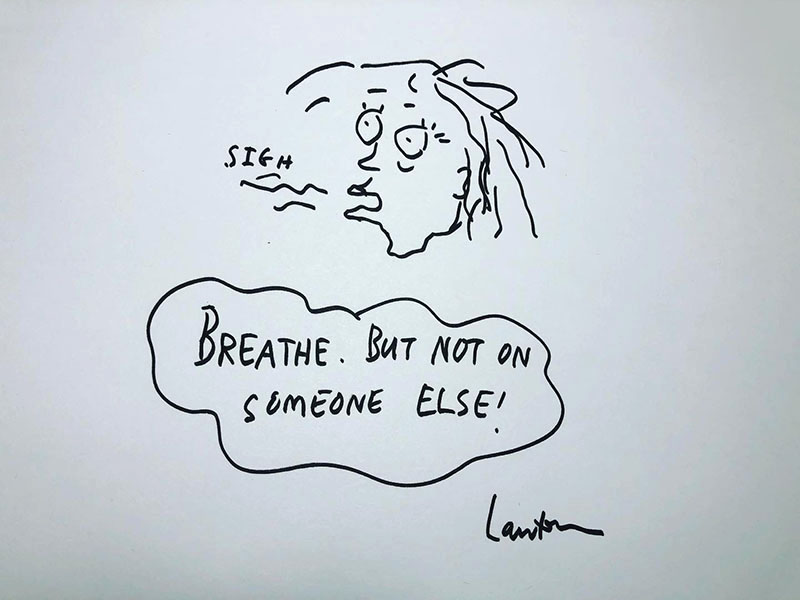 SIGH
BREATHE. BUT NOT ON
SOMEONE ELSE!